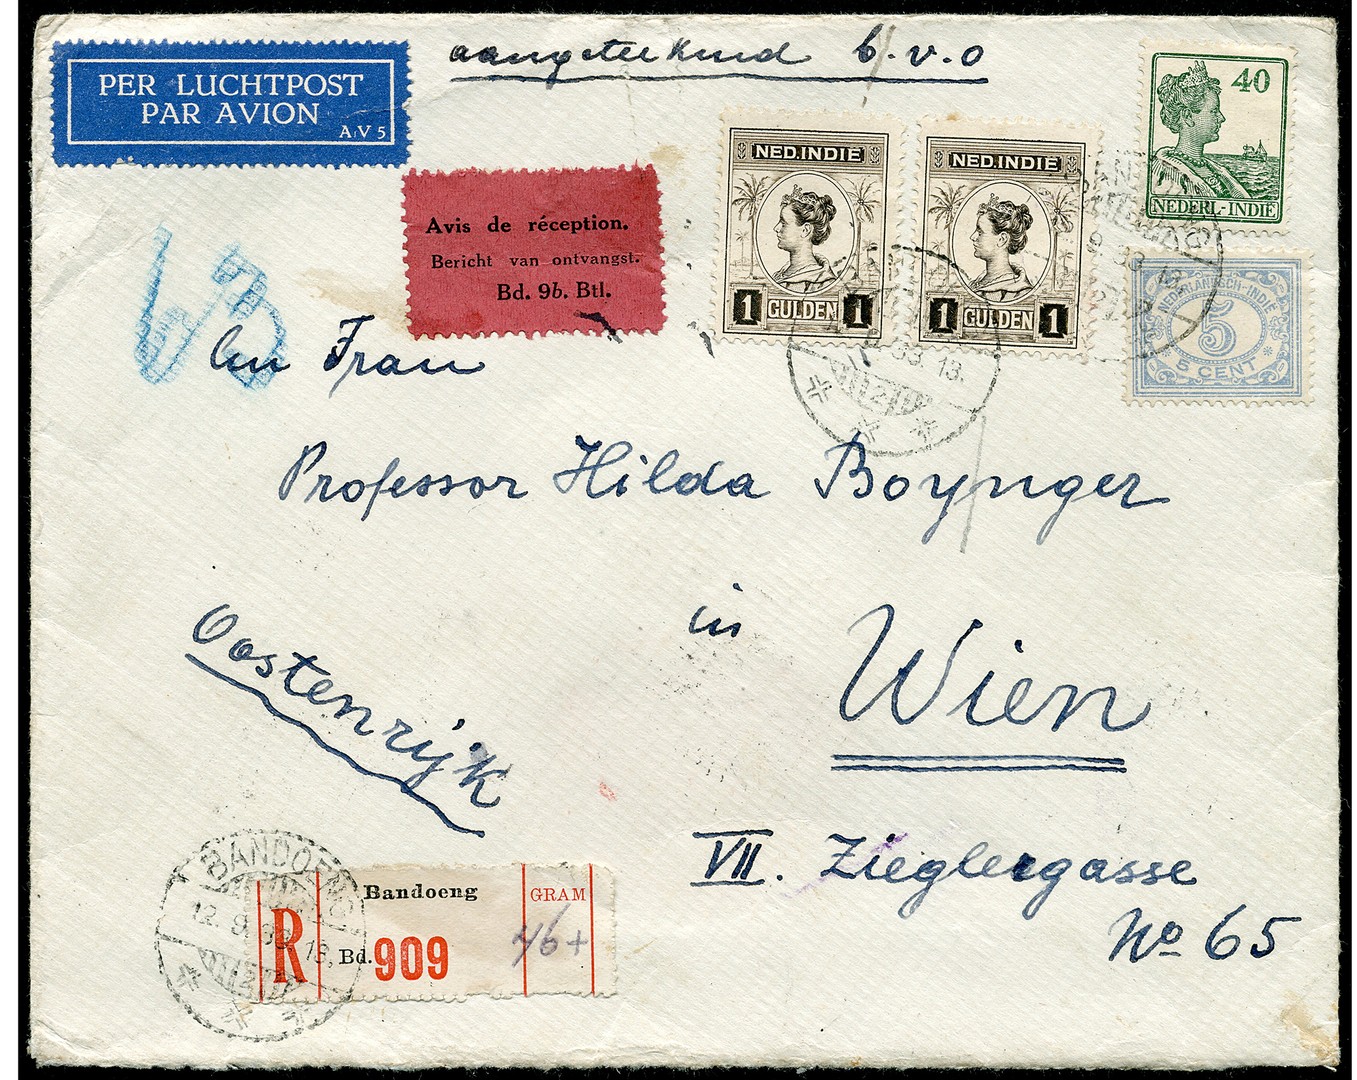 PER LUCHTPOST
PAR AVION
A.V 5
aangeteekend b.v.o
Avis de réception.
Bericht van ontvangst.
Bd. 9b. Btl.
NED.INDIE
1 GULDEN 1
NED.INDIE
1 GULDEN 1
40
NEDERL-INDIE
NEDERLANDSCH-INDIE
5
5 CENT
An Frau
Professor Hilda Boynger
in
Wien
Oostenrijk
VII. Zieglergasse
No 65
BANDOENG
12.9.33.13.
2
R
Bandoeng
Bd. 909
GRAM